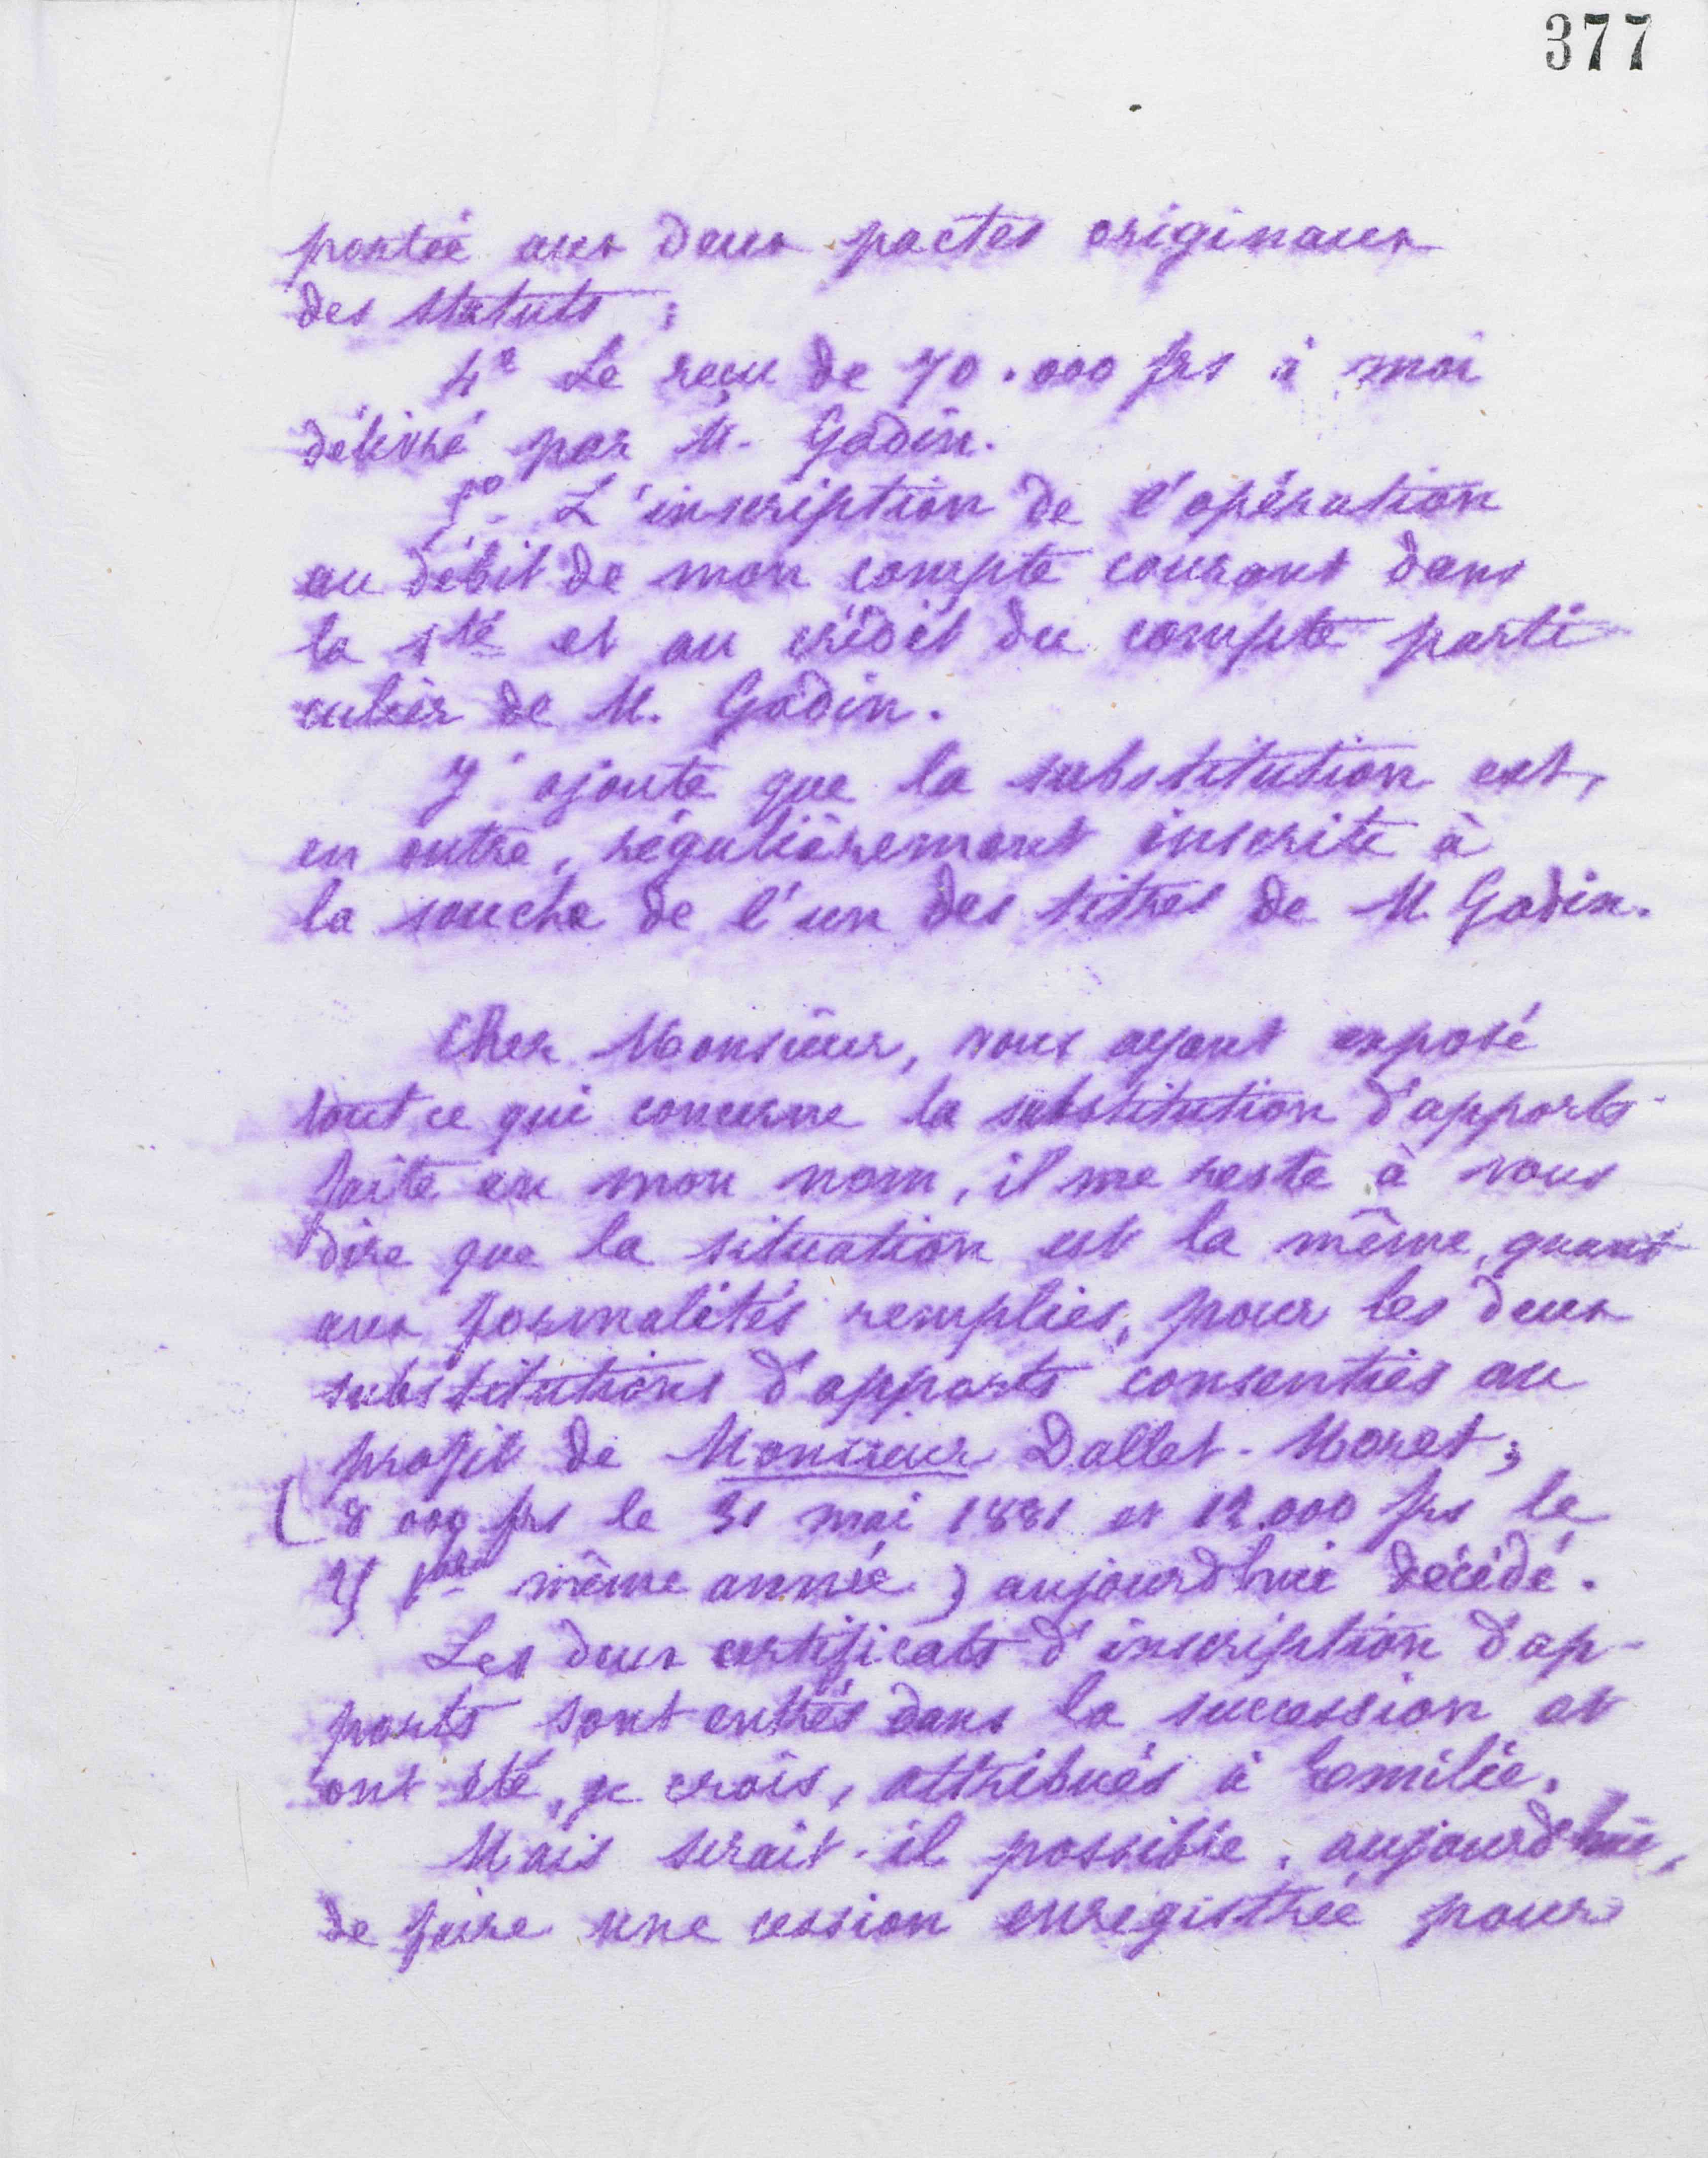 377
portée aux deux pactes originaux
des statuts ;
4° Le reçu de 70.000 frs à moi
délivré par M. Godin.
5° L'inscription de l'opération
au débit de mon compte courant dans
la sté et au crédit du compte parti
culier de M. Godin.
J'ajoute que la substitution est,
en outre, régulièrement inscrite à
la souche de l'un des titres de M. Godin.
Cher Monsieur, vous ayant exposé
tout ce qui concerne la substitution d'apports
faite en mon nom, il me reste à vous
dire que la situation est la même, quant
aux formalités remplies, pour les deux
substitutions d'apports consenties au
profit de Monsieur Dallet-Moret ;
(8 000 frs le 31 mai 1881 et 12.000 frs le
même année) aujourd'hui décédé.
Les deux certificats d'inscription d'ap-
ports sont entrés dans la succession et
ont été, je crois, attribués à Emilie.
Mais serait-il possible, aujourd'hui,
de faire une cession enregistrée pour